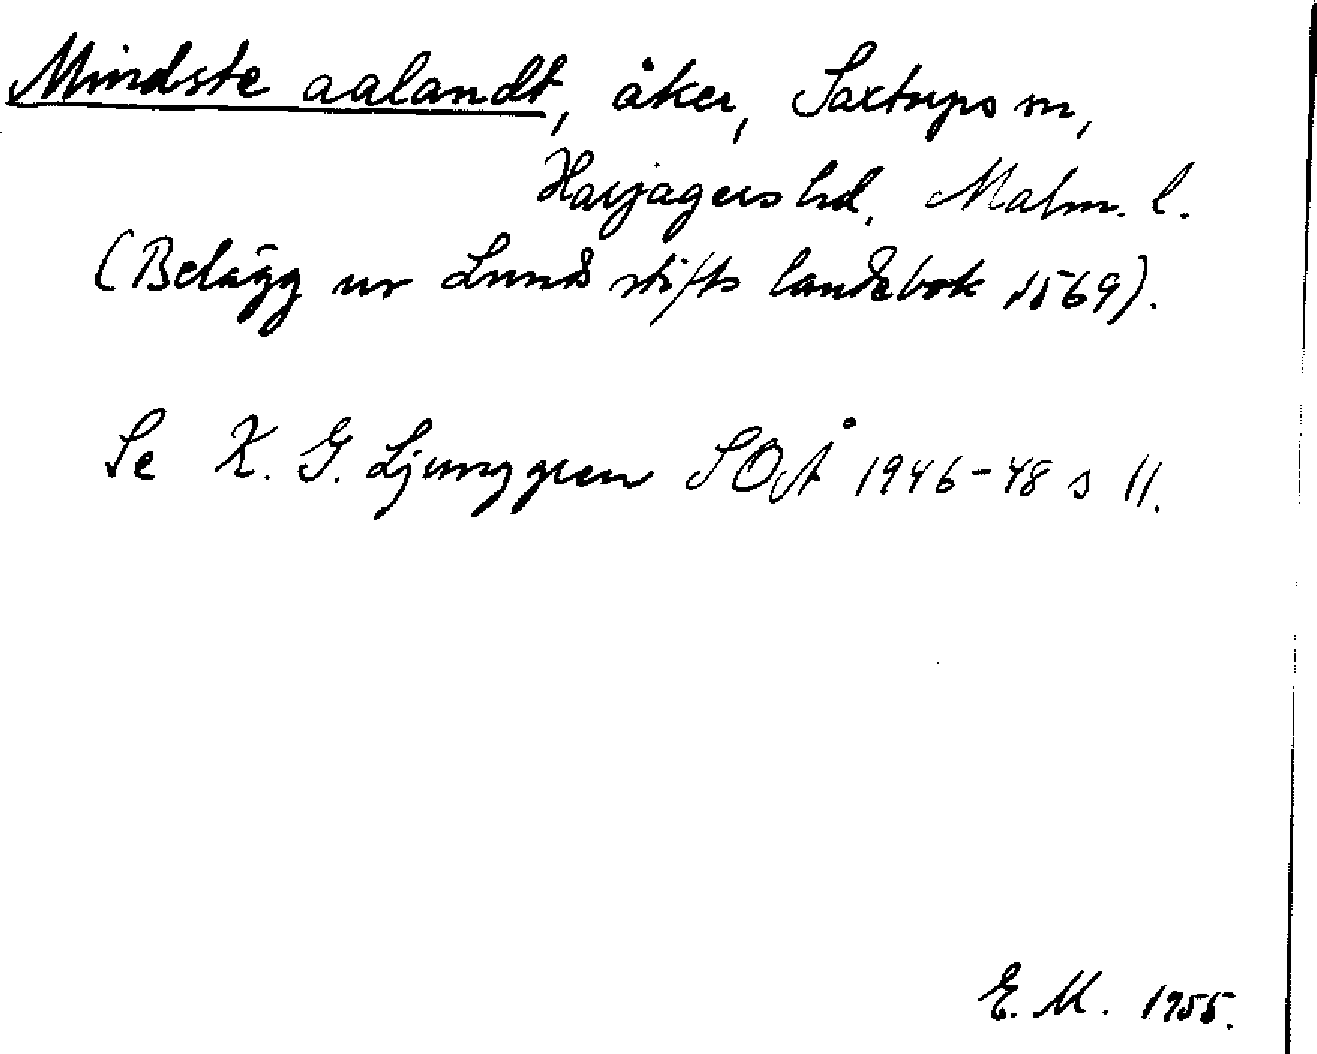 Mindste aalandt, åker, Saxtorps sn,
Harjagers hd, Malm. l.
(Belägg ur Lunds stifts landebok 1569).
Se K. G. Ljunggren SOÅ 1946-48 s 11.
E. M. 1955.